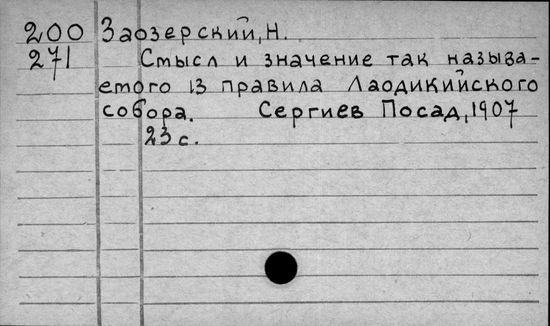 200 Заозерский, Н.
271 Смысл и значение так называ-
емого 13 правила Лаодикийского
собора. Сергиев Посад, 1907
23 с.